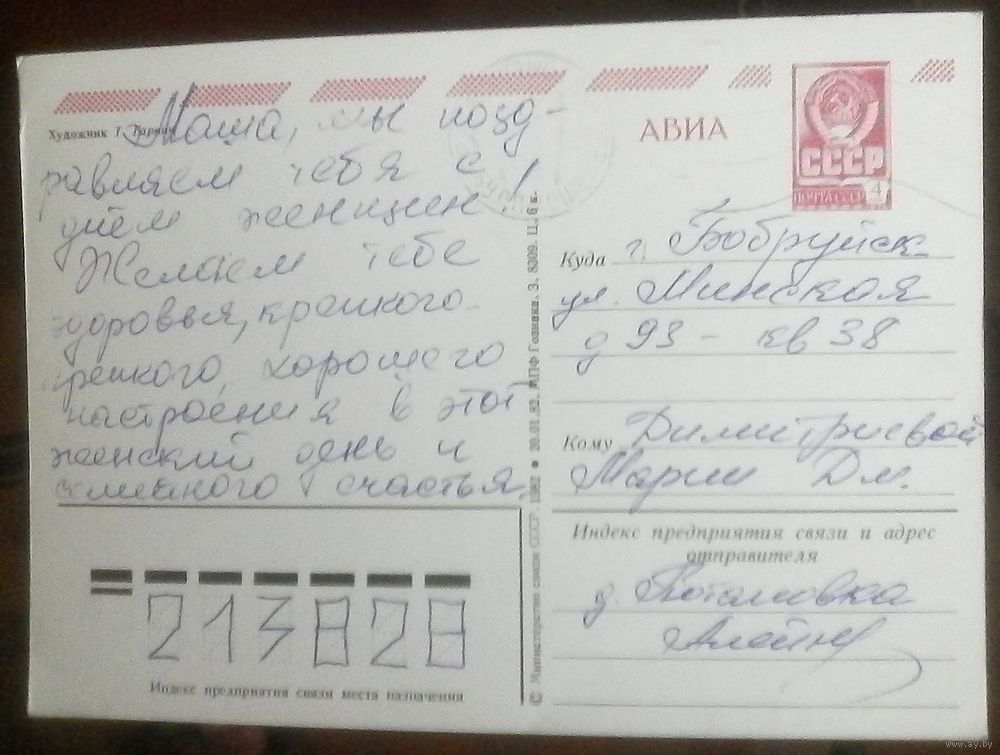 Художник Г.
Маша, мы позд-
равляем тебя с
днём женщин!
Желаем тебе
здоровья, крепкого-
крепкого, хорошего
настроения в этот
женский день и
семейного счастья.
АВИА
СССР
ПОЧТА СССР 4
Куда г. Бобруйск
ул. Минская
д 93 - кв 38
Кому Димитриевой
Марии Дм.
Индекс предприятия связи и адрес
отправителя
д.
213828
Индекс предприятия связи места назначения
© Министерство связи СССР. 1982 • 20.01.82. МПФ Гознака. З. 8009. Ц. 6 к.
www.ay.by